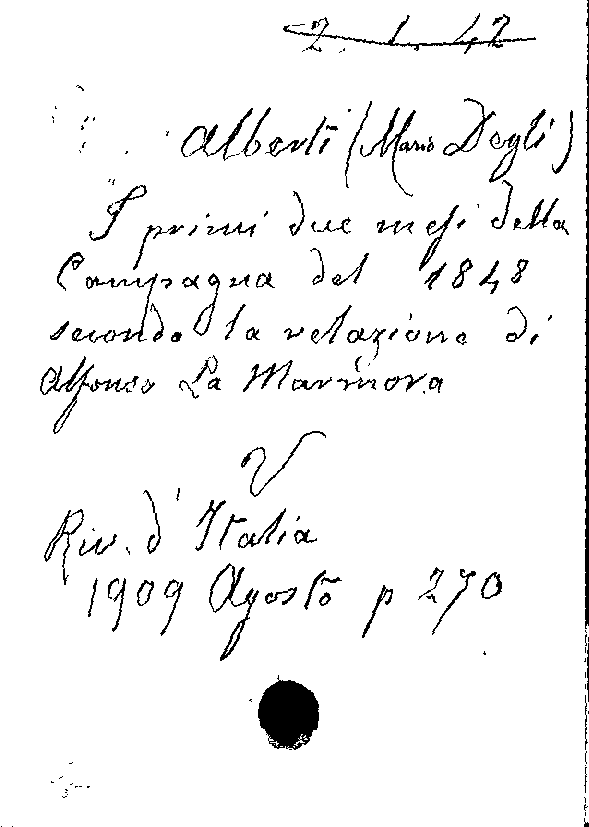 2. 1. 42
Alberti (Mario Degli)
I primi due mesi della
Campagna del 1848
secondo la relazione di
Alfonso La Marmora
V
Riv. d'Italia
1909 Agosto p 270